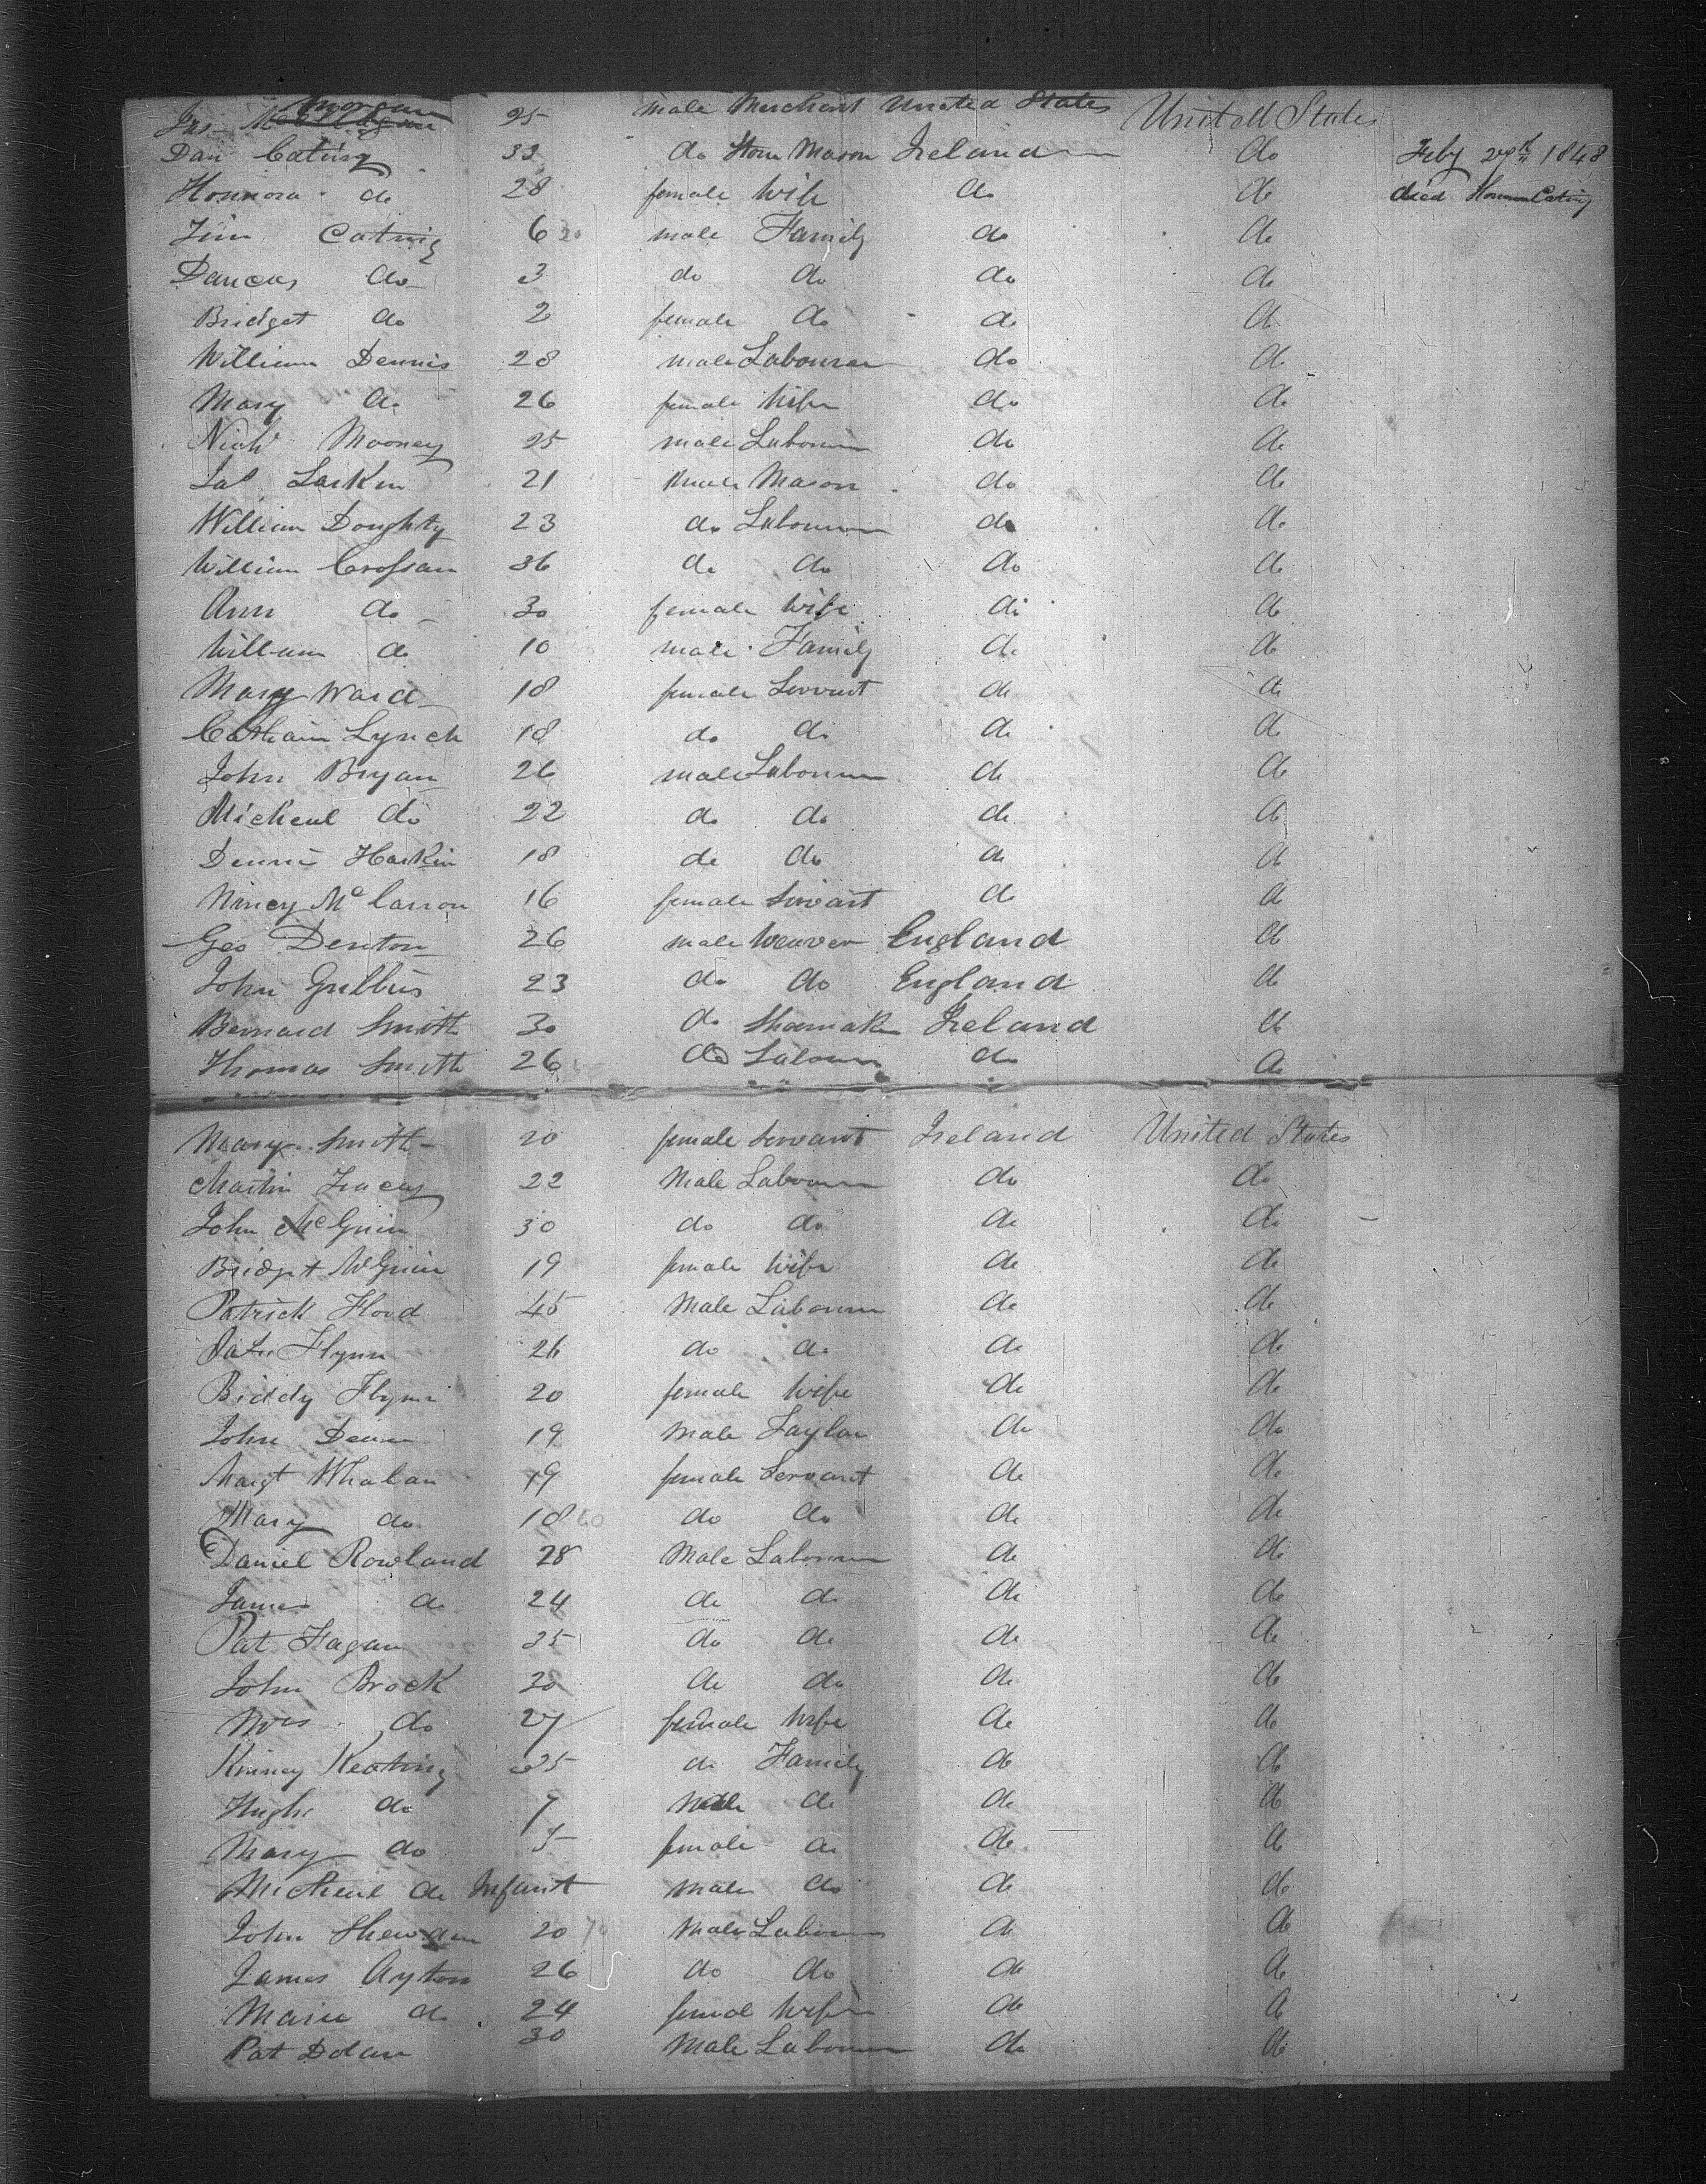 Jas Morgan 25 male Merchant United States United States
Dan Cating 33 do Stone Mason Ireland do Feby 29th 1848
Honnora do 28 female Wife do do died Honnora Cating
Jim Cating 6 20 male Family do do
do 3 do do do do
Bridget do 2 female do do do
William Dennis 28 male Labourer do do
Mary do 26 female Wife do do
Nich Mooney 25 male Labourer do do
Jas Larkin 21 male Mason do do
William Doughty 23 do Labourer do do
William Crossan 36 do do do do
Ann do 30 female Wife do do
William do 10 male Family do do
Mary Ward 18 female Servant do do
Catharin Lynch 18 do do do do
John Bryan 26 male Labourer do do
Micheal do 22 do do do do
Dennis Harkin 18 do do do do
Nancy McCarron 16 female Servant do do
Geo Denton 26 male Weaver England do
John 23 do do England do
Bernard Smith 30 do Shoemaker Ireland do
Thomas Smith 26 do Labourer do do
Mary Smith 20 female Servant Ireland United States
Martin 22 Male Labourer do do
John McGuin 30 do do do do
Bridget McGuin 19 female Wife do do
Patrick Flood 45 Male Labourer do do
Flynn 26 do do do do
Biddy Flynn 20 female Wife do do
John 19 Male Taylor do do
Margt Whalan 19 female Servant do do
Mary do 18 60 do do do do
Daniel Rowland 28 Male Labourer do do
James do 24 do do do do
Pat Fagan 25 do do do do
John Brock 20 do do do do
Mrs do 27 female Wife do do
Keating 25 do Family do do
Hugh do 7 Male do do do
Mary do 5 female do do do
Micheal do Infant Male do do do
John 20 70 Male Labourer do do
James Ayton 26 do do do do
Maria do 24 femal Wife do do
Pat Dolan 30 Male Labourer do do